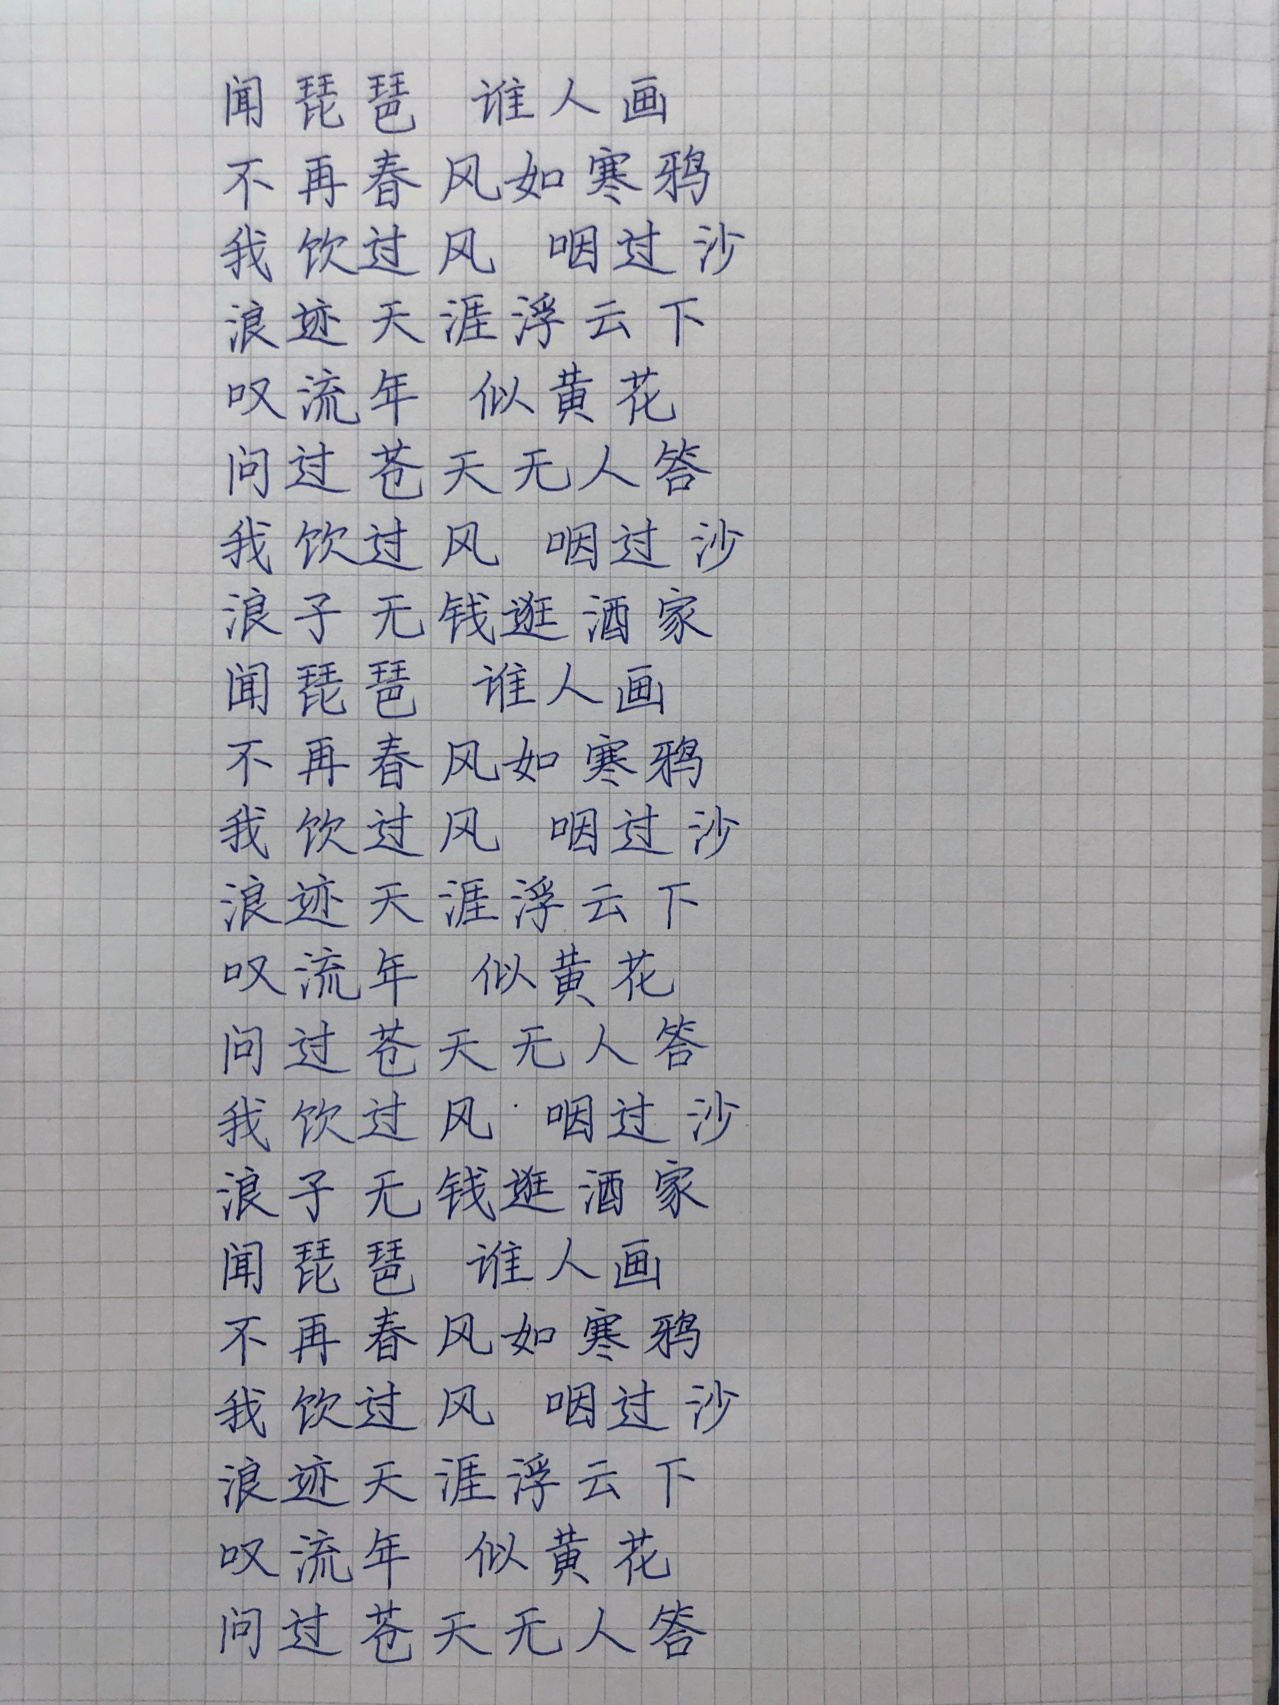 闻琵琶 谁人画
不再春风如寒鸦
我饮过风 咽过沙
浪迹天涯浮云下
叹流年 似黄花
问过苍天无人答
我饮过风 咽过沙
浪子无钱逛酒家
闻琵琶 谁人画
不再春风如寒鸦
我饮过风 咽过沙
浪迹天涯浮云下
叹流年 似黄花
问过苍天无人答
我饮过风 咽过沙
浪子无钱逛酒家
闻琵琶 谁人画
不再春风如寒鸦
我饮过风 咽过沙
浪迹天涯浮云下
叹流年 似黄花
问过苍天无人答